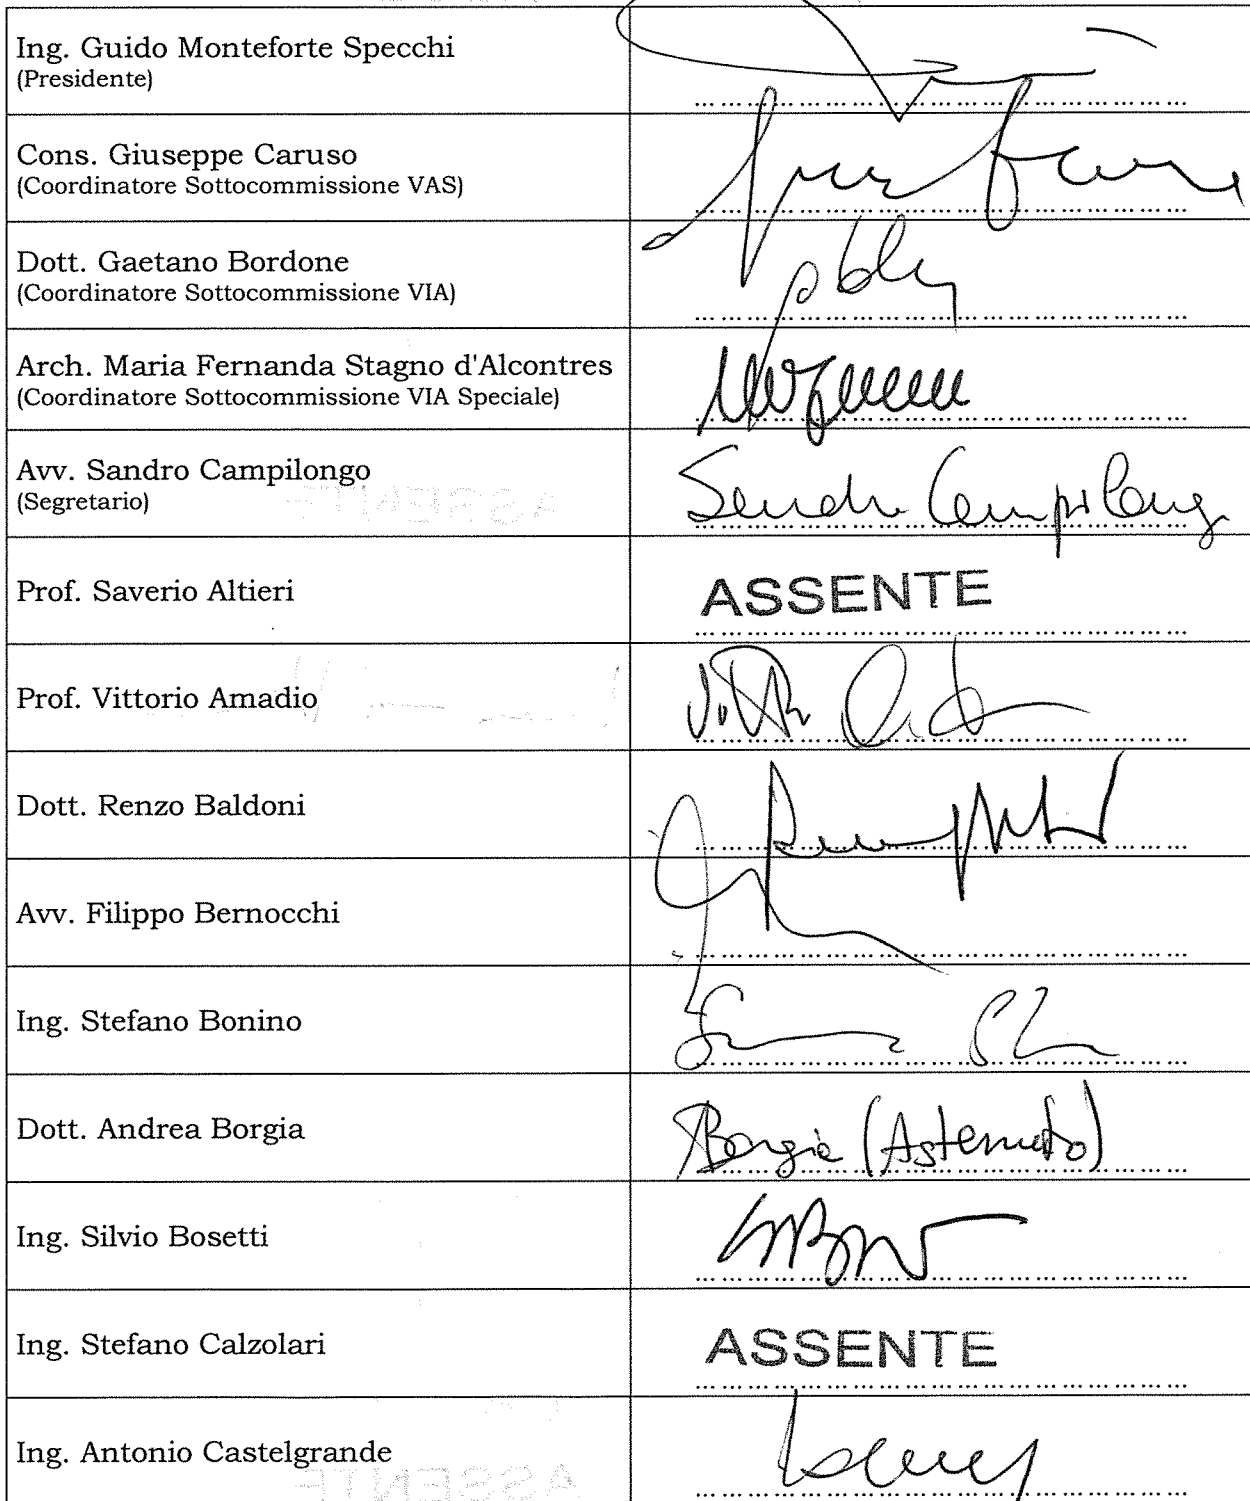 Ing. Guido Monteforte Specchi
(Presidente)
Cons. Giuseppe Caruso
(Coordinatore Sottocommissione VAS)
Dott. Gaetano Bordone
(Coordinatore Sottocommissione VIA)
Arch. Maria Fernanda Stagno d'Alcontres
(Coordinatore Sottocommissione VIA Speciale)
Avv. Sandro Campilongo
(Segretario)
Sandro Campilongo
Prof. Saverio Altieri
ASSENTE
Prof. Vittorio Amadio
Dott. Renzo Baldoni
Avv. Filippo Bernocchi
Ing. Stefano Bonino
Dott. Andrea Borgia
Borgia (Astenuto)
Ing. Silvio Bosetti
Ing. Stefano Calzolari
ASSENTE
Ing. Antonio Castelgrande